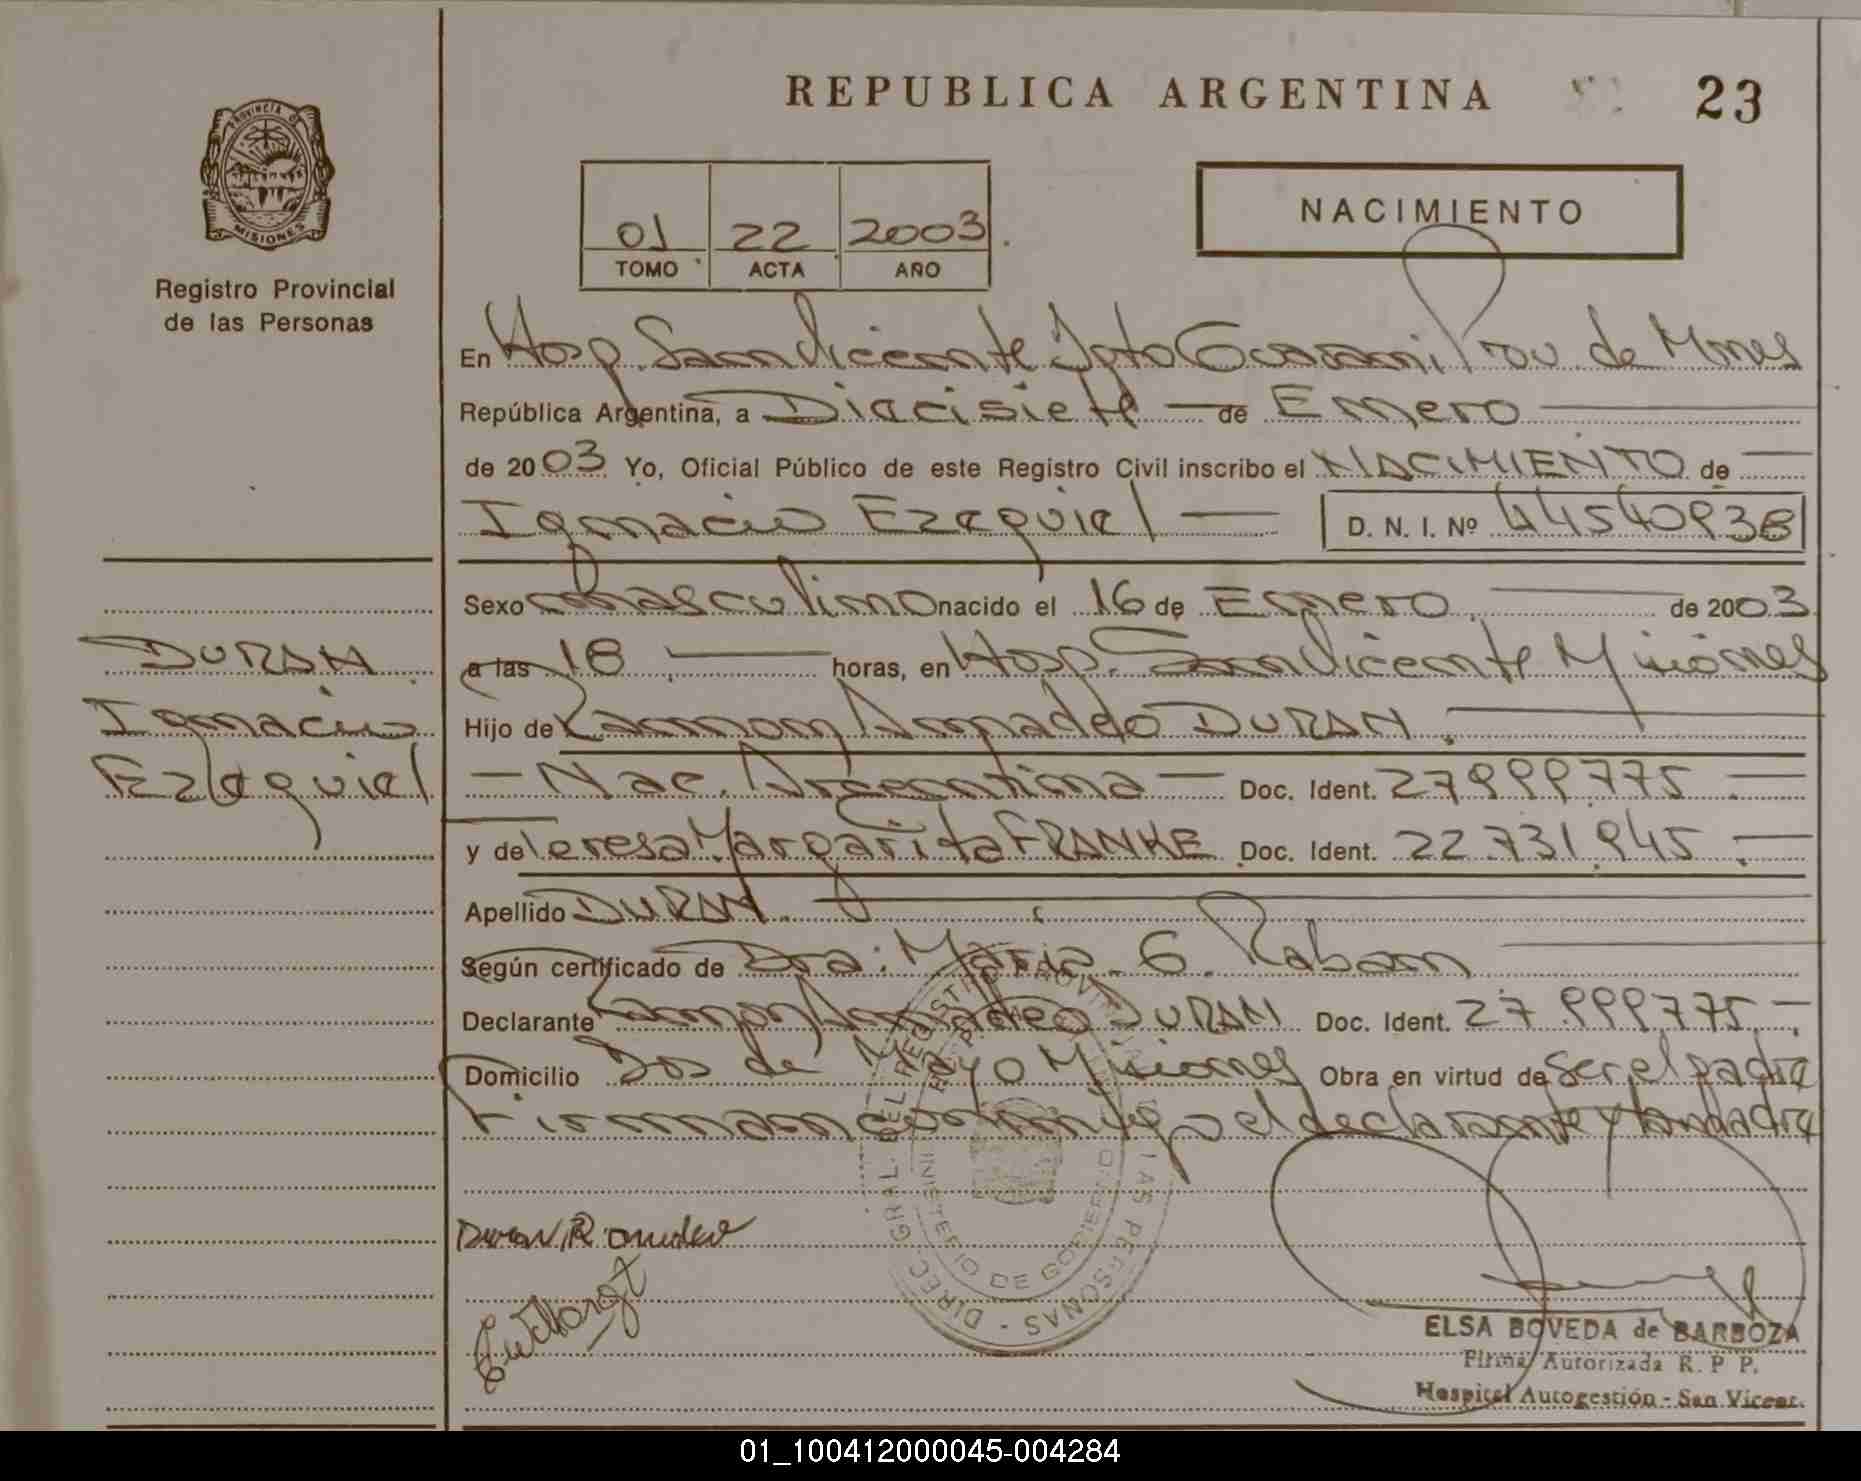 REPUBLICA ARGENTINA
23
PROVINCIA DE
MISIONES
Registro Provincial
de las Personas
01 22 2003
TOMO ACTA AÑO
NACIMIENTO
En Hosp. San Vicente Dpto Guarani Prov. de Mnes
República Argentina, a Diecisiete de Enero
de 2003 Yo, Oficial Público de este Registro Civil inscribo el NACIMIENTO de
Ignacio Ezequiel D. N. I. Nº 44540938
Sexo masculino nacido el 16 de Enero de 2003
a las 18 horas, en Hosp. San Vicente Misiones
Hijo de Ramon Amadeo DURAN
Nac. Argentina Doc. Ident. 27999775
y de Teresa Margarita FRANKE Doc. Ident. 22.731.945
Apellido DURAN
Según certificado de Dra: Maria G. Raban
Declarante Ramon Amadeo DURAN Doc. Ident. 27.999775
Domicilio Dos de Mayo Misiones Obra en virtud de ser el padre
Firman conmigo el declarante y la madre
DURAN
Ignacio
Ezequiel
DIREC. GRAL. DEL REGISTRO PROVINCIAL DE LAS PERSONAS
MINISTERIO DE GOBIERNO
Duran, R. Amadeo
ELSA BOVEDA de BARBOZA
Firma Autorizada R. P P.
Hospital Autogestión - San Vicent.
01_100412000045-004284